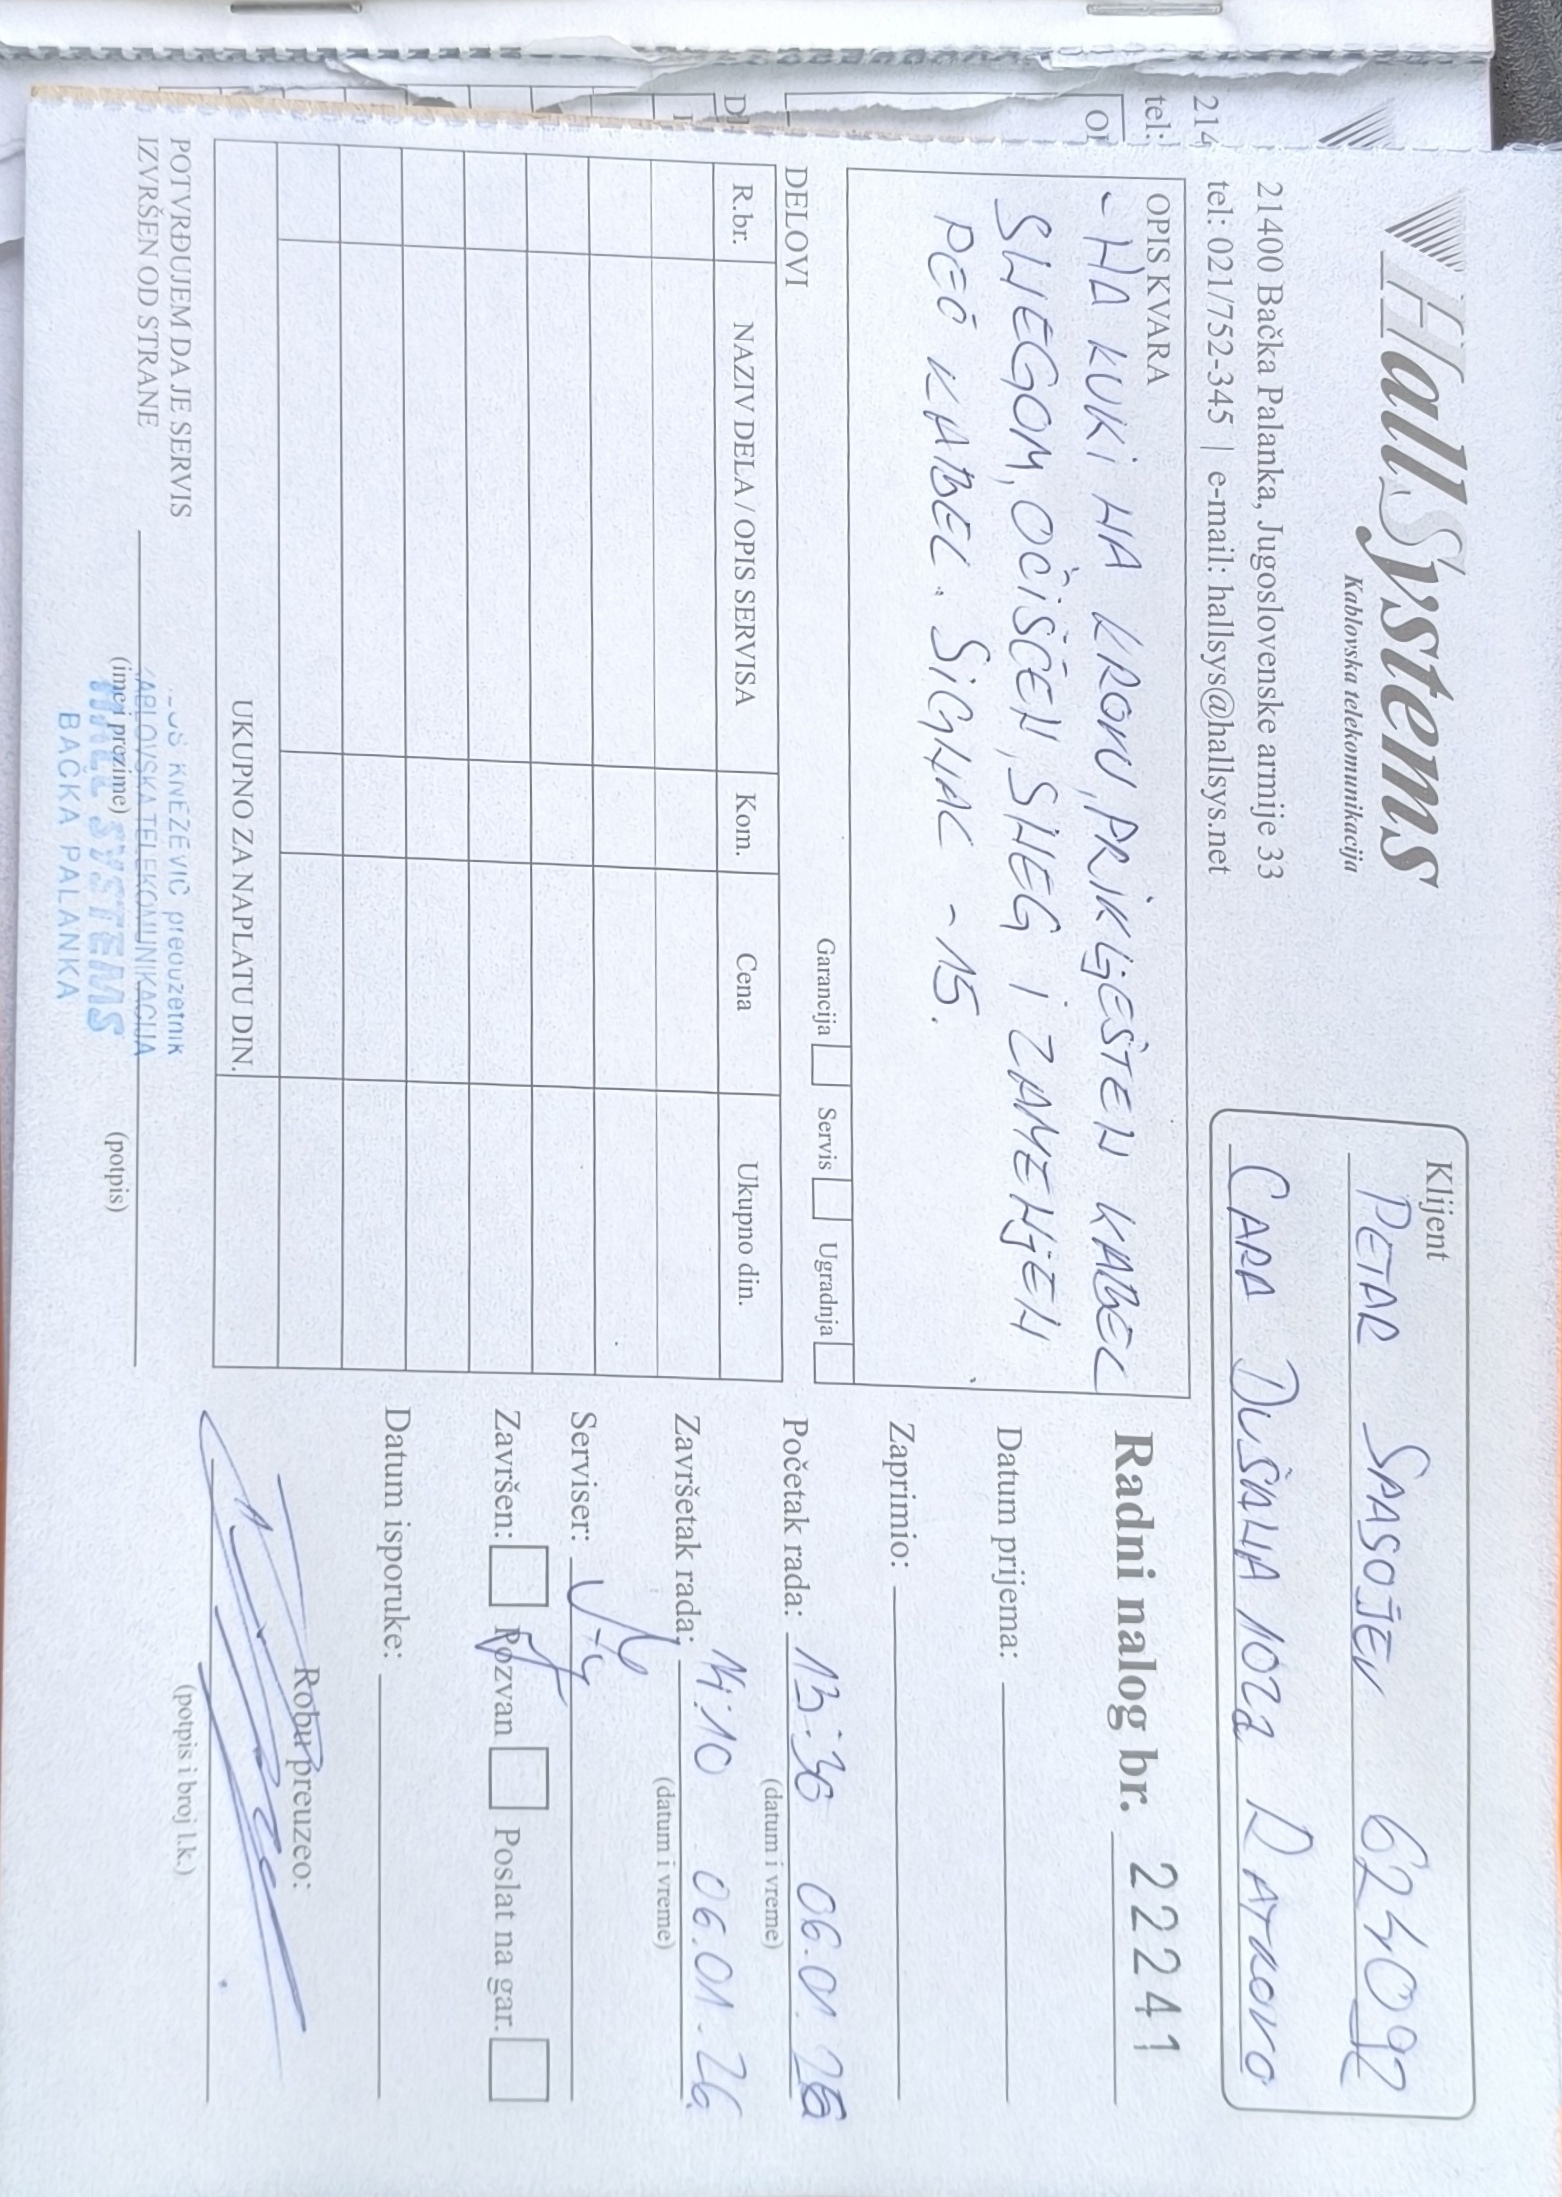 Hall Systems
Kablovska telekomunikacija
21400 Bačka Palanka, Jugoslovenske armije 33
tel: 021/752-345 | e-mail: hallsys@hallsys.net
Klijent
PETAR SPASOJEV 624092
CARA DUŠANA 102a RATKOVO
OPIS KVARA
- NA KUKi NA KROVU, PRiKLJEŠTEN KABEL
SNEGOM, OČiŠĆEN, SNEG i ZAMENJEN
PEČ KABEL. SiGNAL -15.
Garancija Servis Ugradnja
DELOVI
R.br. NAZIV DELA / OPIS SERVISA Kom. Cena Ukupno din.
UKUPNO ZA NAPLATU DIN.
POTVRĐUJEM DA JE SERVIS
IZVRŠEN OD STRANE
(ime i prezime) (potpis)
KNEŽEVIĆ preduzetnik
KABLOVSKA TELEKOMUNIKACIJA
HALL SYSTEMS
BAČKA PALANKA
Radni nalog br. 22241
Datum prijema:
Zaprimio:
Početak rada: 13:30 06.01.26
(datum i vreme)
Završetak rada: 14:10 06.01.26
(datum i vreme)
Serviser:
Završen: Pozvan Poslat na gar.
Datum isporuke:
Robu preuzeo:
(potpis i broj l.k.)
214
tel: